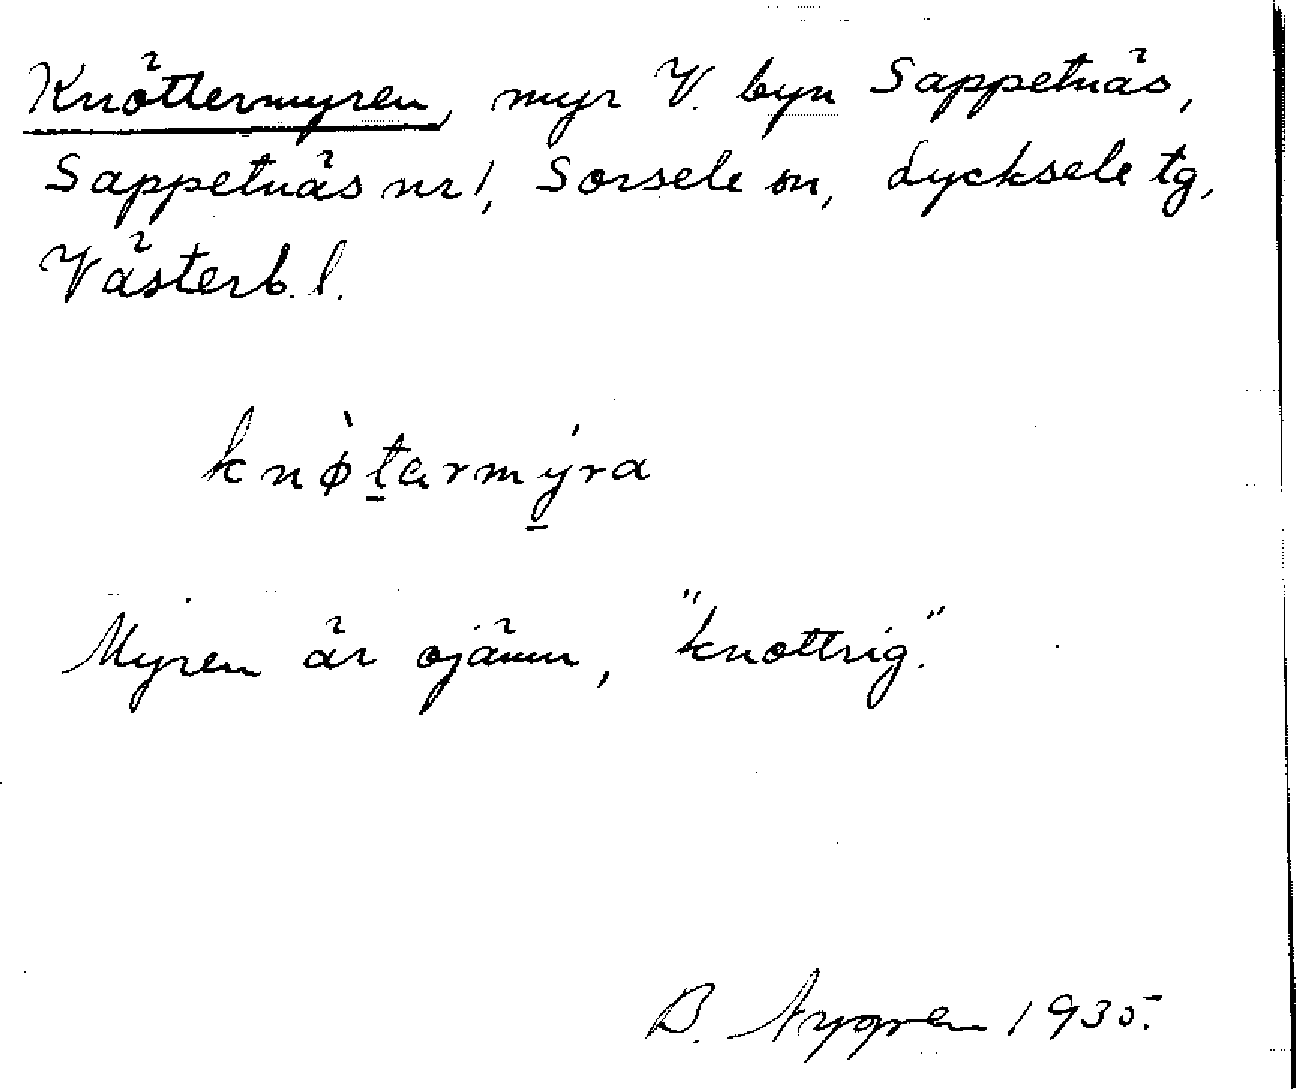 Knöttermyren, myr V. byn Sappetnäs,
Sappetnäs nr 1, Sorsele sn, Lycksele tg,
Västerb. l.
knø̀tarmýra
Myren är ojämn, "knottrig."
B. Nygren 1935.